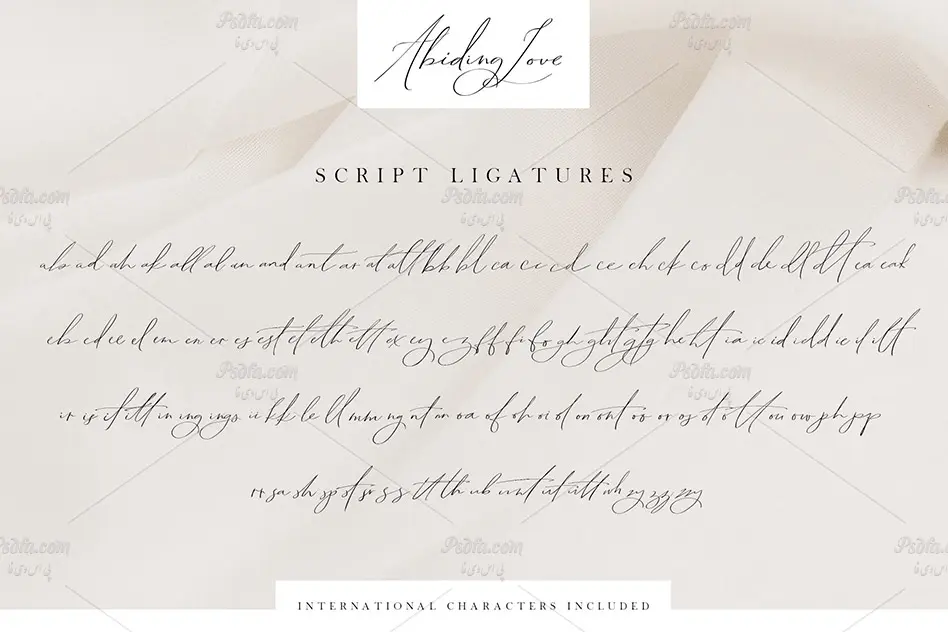 Abiding Love
SCRIPT LIGATURES
ab ad ah ak all al an and ant ar at att bb bl ca cc cd ce ch ck co dd de dll dt ea eak
eb ed ee el em en er es est et eth ett ex ey ez ff fi fo gh ght gg tg he ht ia ic id idd ie il ilt
ir is it itt in ing ings ii kk le ll mm ng nt on oa of oh oi ol on ont oo or os ot ott ou ow ph pp
rr sa sh sp st sr ss tt th ub unt ut utt wh zy zz zzy
INTERNATIONAL CHARACTERS INCLUDED
Psdfa.com